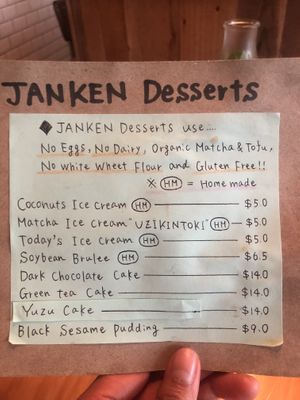 JANKEN Desserts
◆ JANKEN Desserts use....
No Eggs, No Dairy, Organic Matcha & Tofu,
No white Wheet Flour and Gluten Free!!
※ HM = Homemade
Coconuts Ice cream HM $5.0
Matcha Ice cream "UZIKINTOKI" HM $5.0
Today's Ice cream HM $5.0
Soybean Brulee HM $6.5
Dark Chocolate Cake $14.0
Green tea Cake $14.0
Yuzu Cake $14.0
Black Sesame pudding $9.0